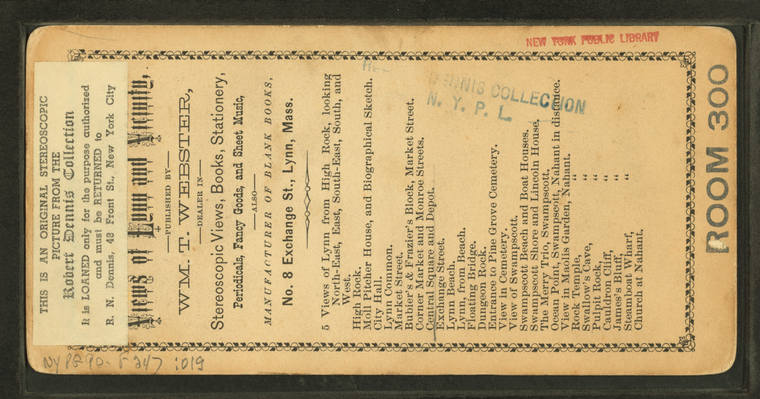 THIS IS AN ORIGINAL STEREOSCOPIC
PICTURE FROM THE
Robert Dennis Collection
It is LOANED only for the purpose authorized
and must be RETURNED to
R. N. Dennis, 48 Front St., New York City
Views of Lynn and Vicinity,
—PUBLISHED BY—
WM. T. WEBSTER,
—DEALER IN—
Stereoscopic Views, Books, Stationery,
Periodicals, Fancy Goods, and Sheet Music,
—ALSO—
MANUFACTURER OF BLANK BOOKS,
No. 8 Exchange St., Lynn, Mass.
5 Views of Lynn from High Rock, looking
North-East, East, South-East, South, and
West.
High Rock.
Moll Pitcher House, and Biographical Sketch.
City Hall.
Lynn Common.
Market Street.
Bubier's & Frazier's Block, Market Street.
Corner Market and Monroe Streets.
Central Square and Depot.
Exchange Street.
Lynn Beach.
Lynn, from Beach.
Floating Bridge.
Dungeon Rock.
Entrance to Pine Grove Cemetery.
View in Cemetery.
View of Swampscott.
Swampscott Beach and Boat Houses.
Swampscott Shore and Lincoln House.
The Merry Trio, Swampscott.
Ocean Point, Swampscott, Nahant in distance.
View in Maolis Garden, Nahant.
Rock Temple, "
Swallow's Cave, "
Pulpit Rock, "
Cauldron Cliff, "
James's Cliff, "
Steamboat Wharf, "
Church at Nahant.
NEW YORK PUBLIC LIBRARY
DENNIS COLLECTION
N. Y. P. L.
ROOM 300
NYPG90-F247 :019